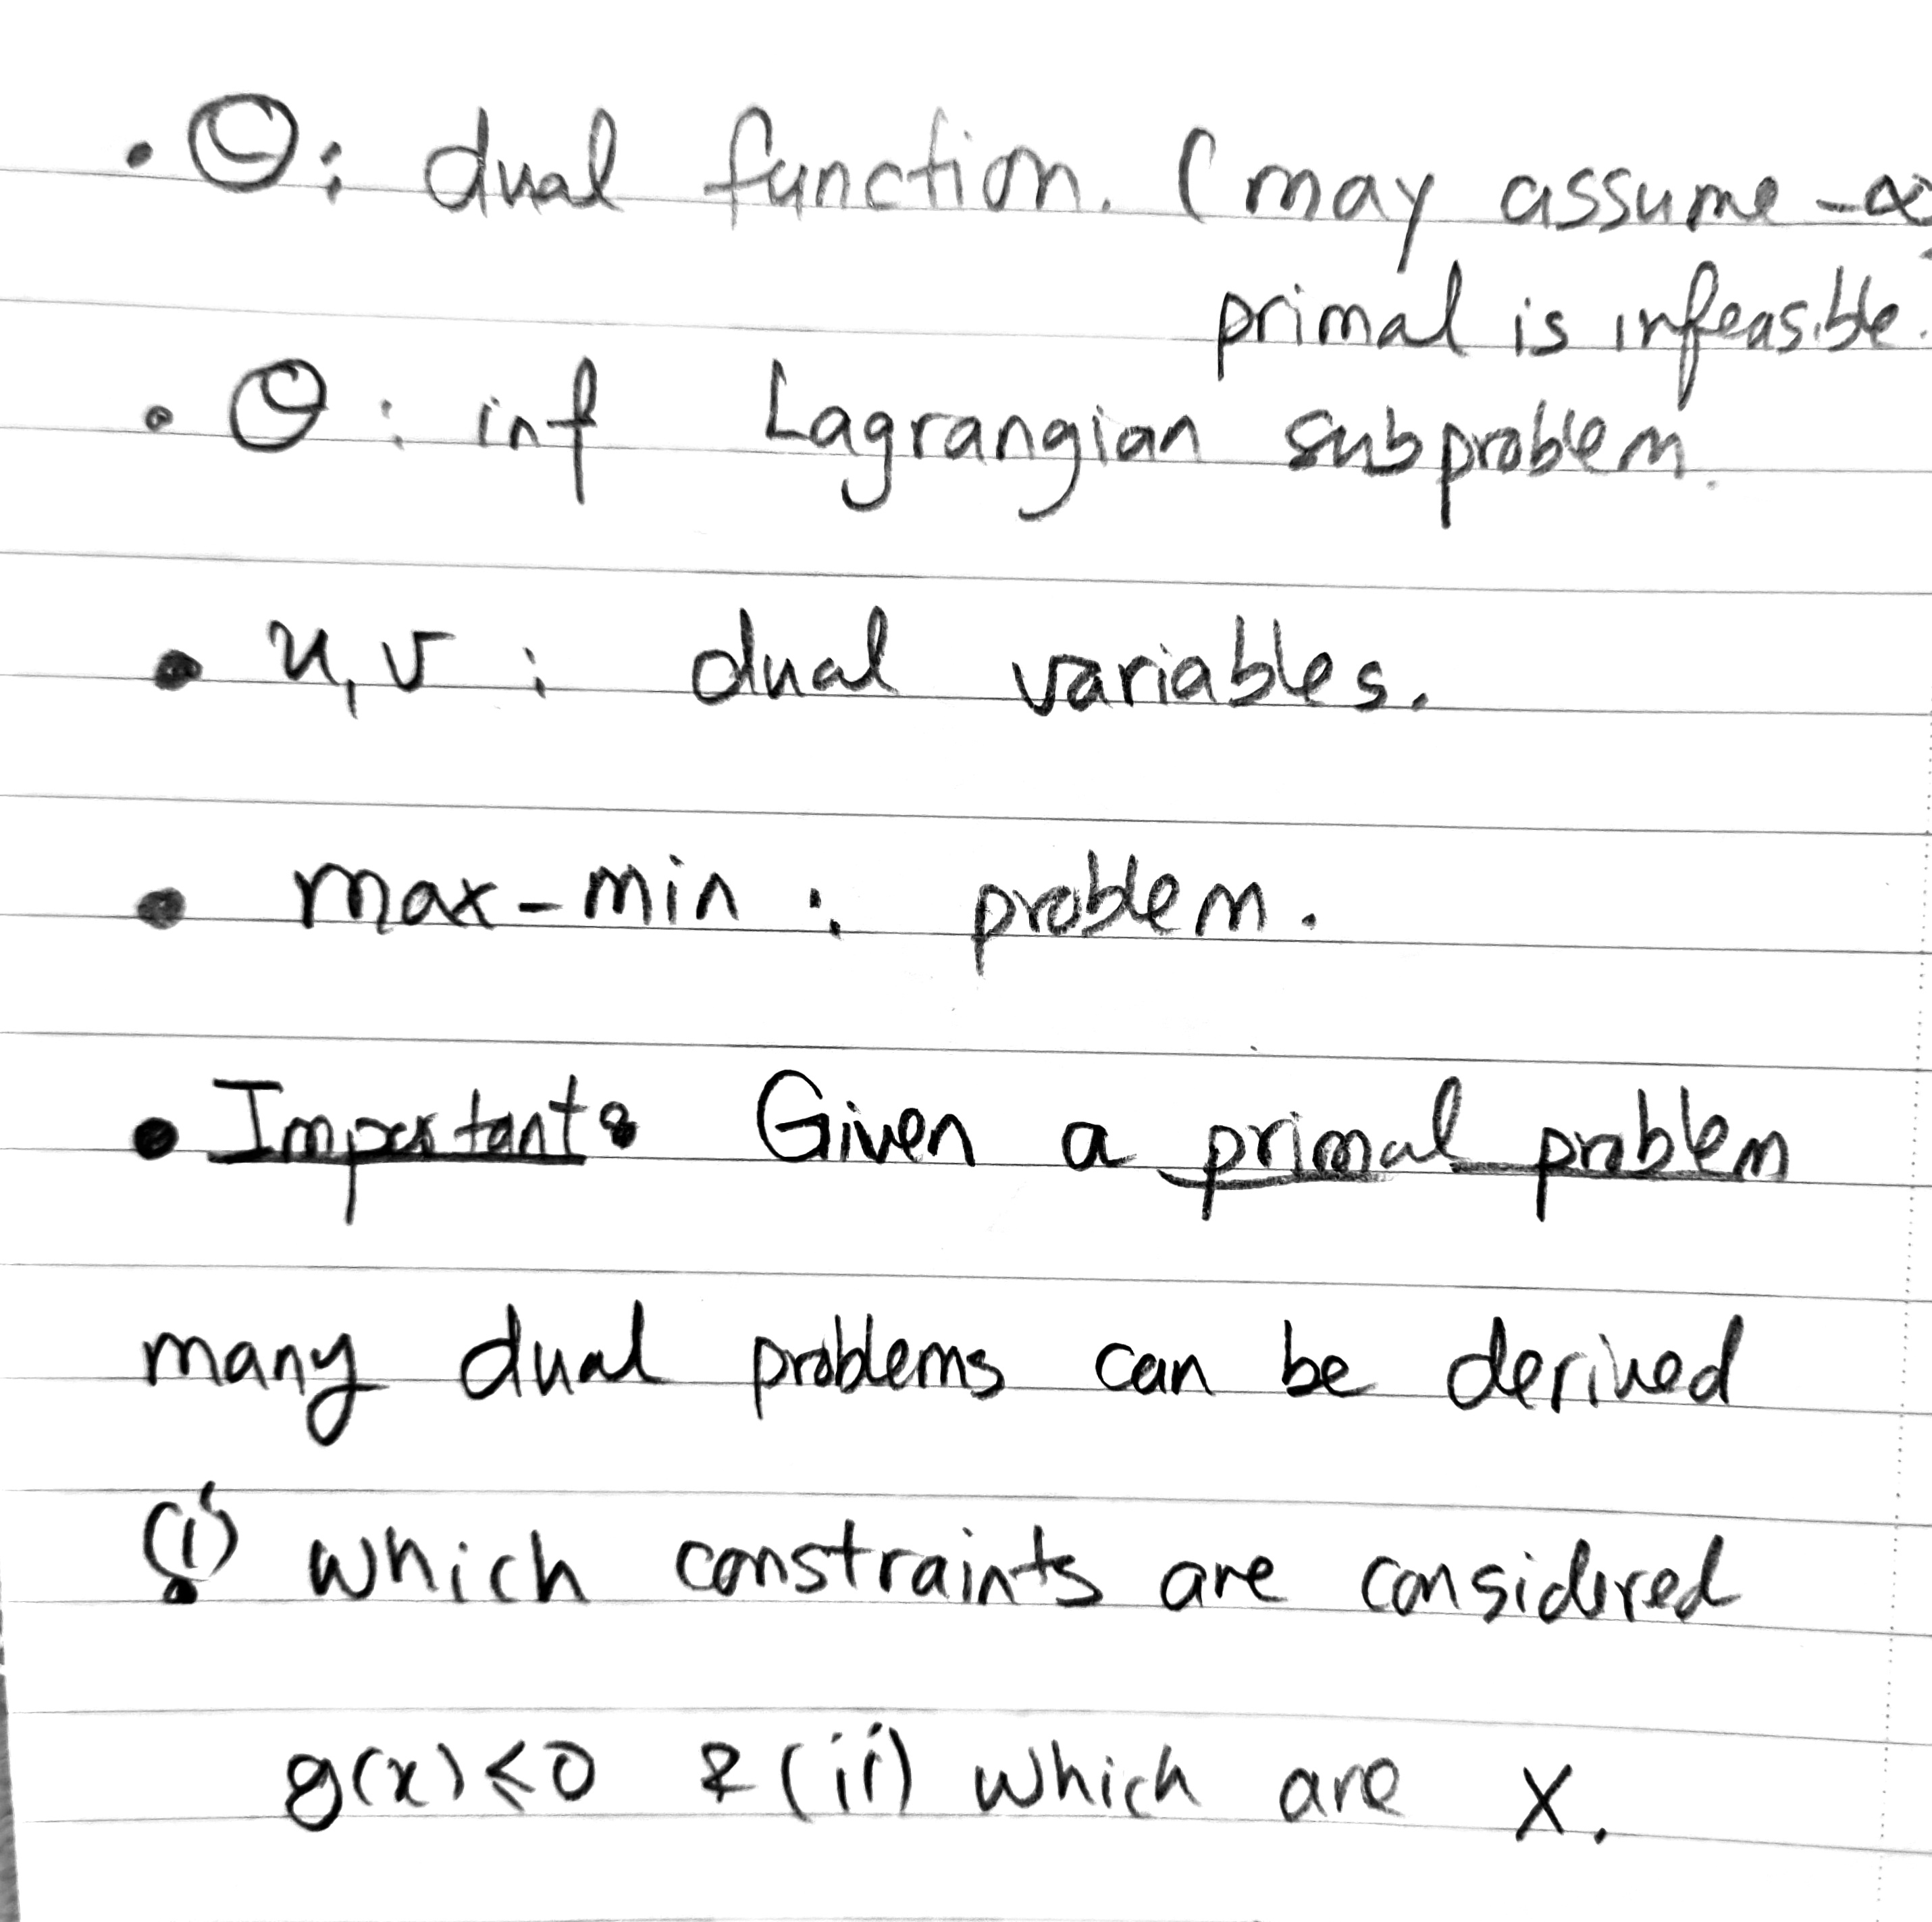 • Θ: dual function. (may assume -∞
primal is infeasible.
• Θ: inf Lagrangian subproblem.
• u,v : dual variables.
• max-min : problem.
• Important: Given a primal problem
many dual problems can be derived
(i) which constraints are considered
g(x)≤0 & (ii) which are X.